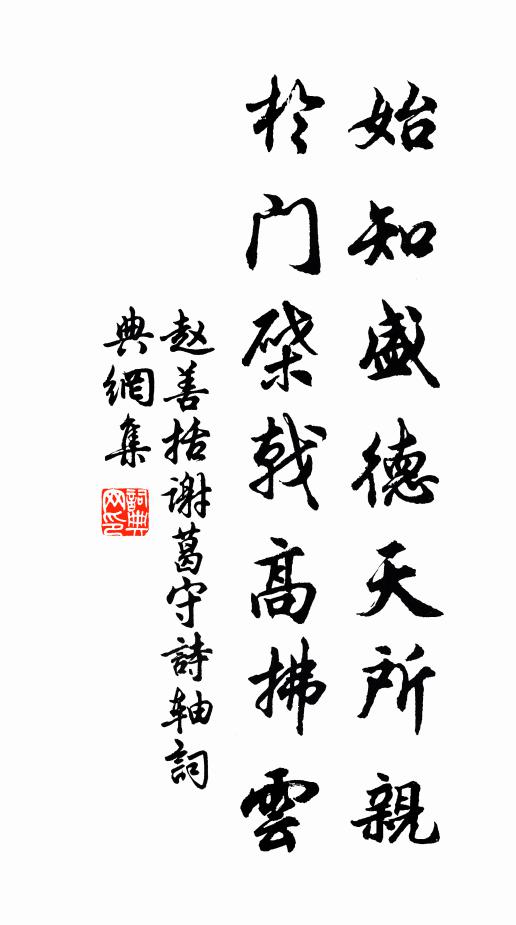 始知盛德天所親
於門棨戟高拂雲
赵善括謝葛守詩軸詞
典網集
詞典網印